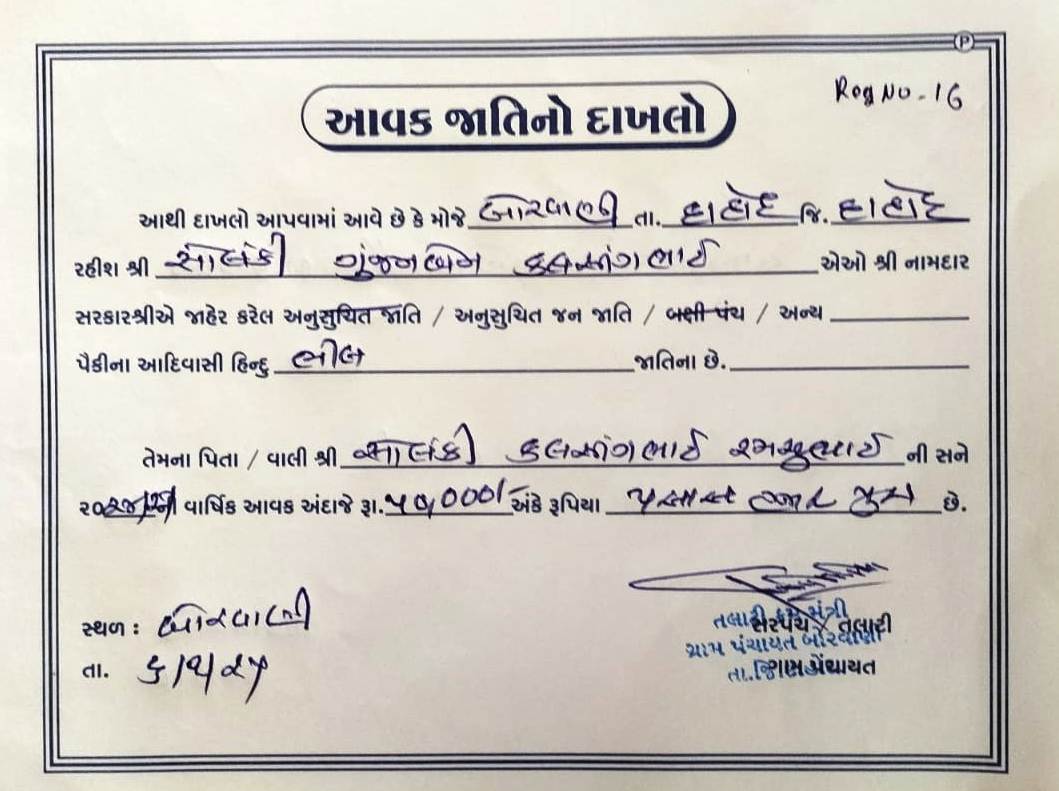 Reg No - 16
આવક જાતિનો દાખલો
આથી દાખલો આપવામાં આવે છે કે મોજે બોરવાણી તા. દાહોદ જિ. દાહોદ
રહીશ શ્રી સોલંકી ગુંજનબેન કલસીંગભાઈ એઓ શ્રી નામદાર
સરકારશ્રીએ જાહેર કરેલ અનુસુચિત જાતિ / અનુસુચિત જન જાતિ / બક્ષી પંચ / અન્ય
પૈકીના આદિવાસી હિન્દુ ભીલ જાતિના છે.
તેમના પિતા / વાલી શ્રી સોલંકી કલસીંગભાઈ રમસુભાઈ ની સને
વાર્ષિક આવક અંદાજે રૂા. અંકે રૂપિયા હજાર પુરા છે.
સ્થળ : બોરવાણી
તા.
તલાટી કમ મંત્રી
સરપંચ / તલાટી
ગ્રામ પંચાયત બોરવાણી
ગ્રામ પંચાયત